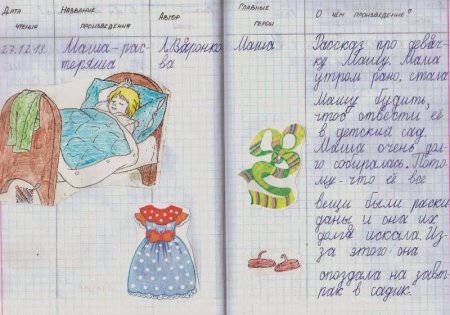 Дата
чтения
Название
произведения
Автор
Главные
герои
О чём произведение?
Маша-рас-
теряша
Л.Варонко-
ва
Маша
Рассказ про девач-
ку Машу. Мама
утром рано, стала
Машу будить,
чтоб отвести её
в детский сад.
Маша очень дол-
го собиралась. Пото-
му-что её все
вещи были раски-
даны, и она их
долга искала. Из-
за этого она
опоздала на завт-
рак в садик.